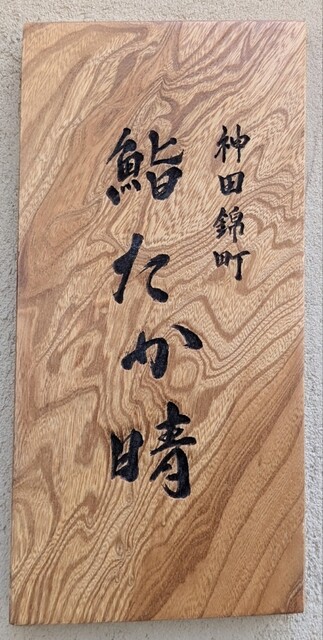 神田錦町
鮨たか晴